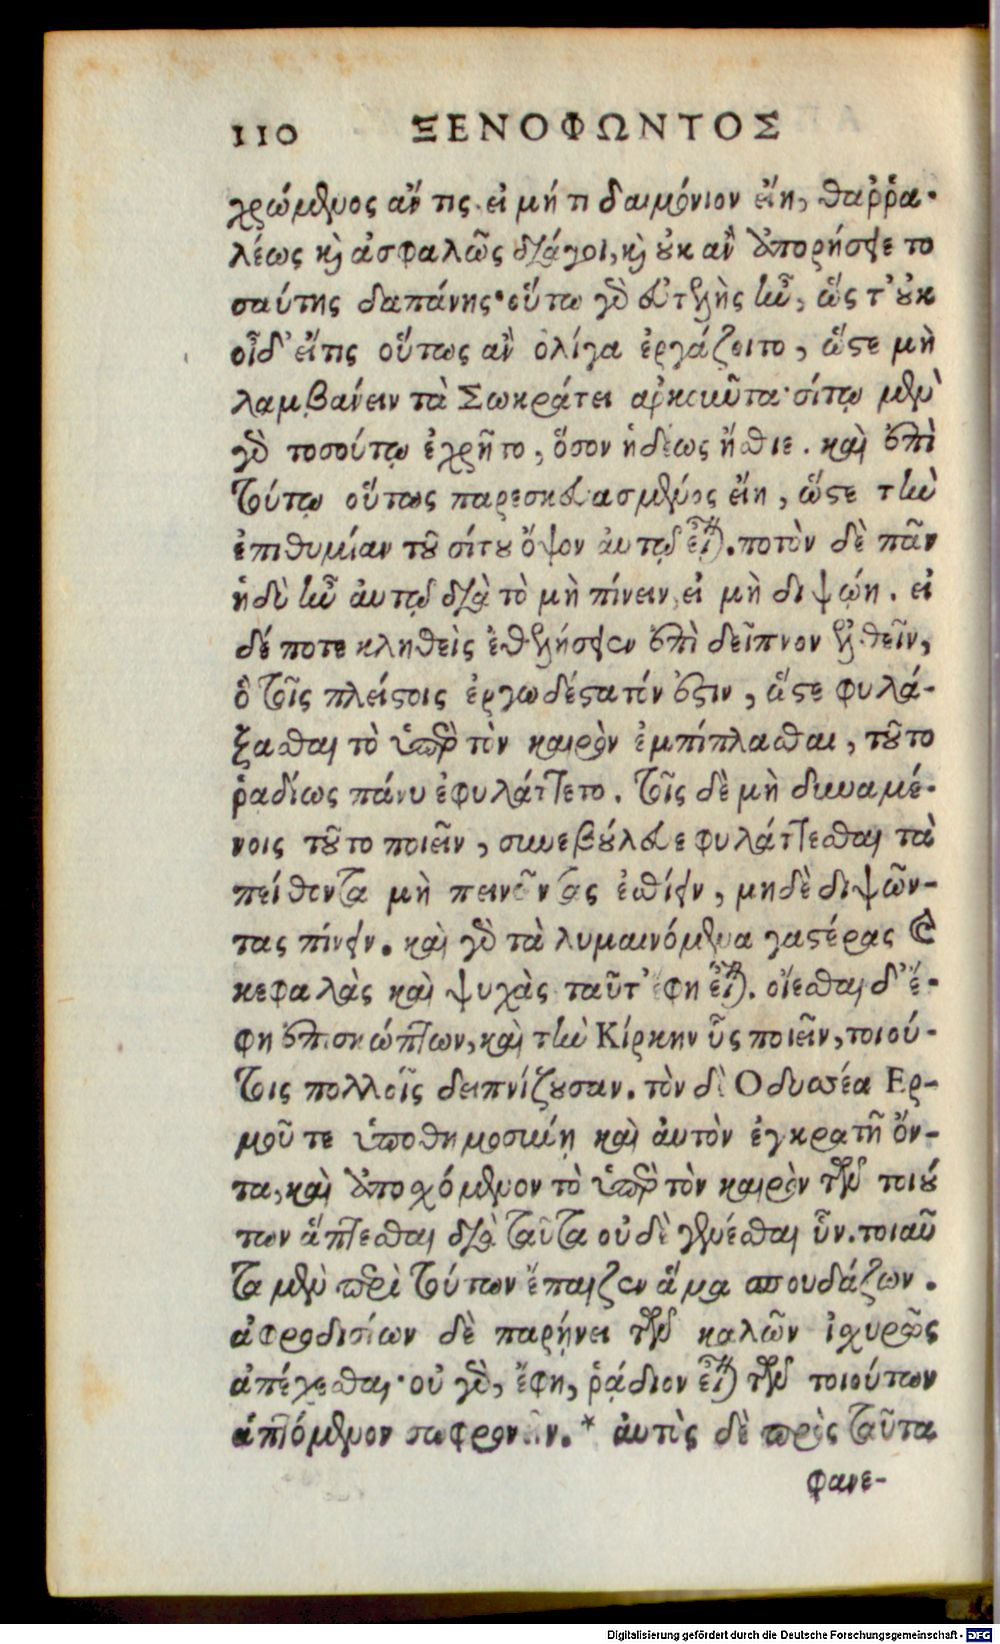 110 ΞΕΝΟΦΩΝΤΟΣ
χρώμενος ἄν τις· εἰ μή τι δαιμόνιον εἴη, θαῤῥα-
λέως καὶ ἀσφαλῶς διάγοι, καὶ οὐκ ἂν ἀπορήσειε το
σαύτης δαπάνης· εὕτω γὰρ εὐτελὴς ἦν, ὥς τ' οὐκ
οἶδ' εἴτις οὕτως ἂν ὀλίγα ἐργάζοιτο, ὥστε μὴ
λαμβάνειν τὰ Σωκράτει ἀρκοῦντα· σίτῳ μὲν
γὰρ τοσούτῳ ἐχρῆτο, ὅσον ἡδέως ἤσθιε. καὶ ἐπὶ
τούτῳ οὕτως παρεσκευασμένος εἴη, ὥστε τὴν
ἐπιθυμίαν τοῦ σίτου ὄψον αὐτῷ εἶναι. ποτὸν δὲ πᾶν
ἡδὺ ἦν αὐτῷ διὰ τὸ μὴ πίνειν, εἰ μὴ διψῴη. εἰ
δέ ποτε κληθεὶς ἐθελήσειεν ἐπὶ δεῖπνον ἐλθεῖν,
ὃ τοῖς πλείστοις ἐργωδέστατόν ἐστιν, ὥστε φυλά-
ξασθαι τὸ ὑπὲρ τὸν καιρὸν ἐμπίπλασθαι, τοῦτο
ῥαδίως πάνυ ἐφυλάττετο. τοῖς δὲ μὴ δυναμέ-
νοις τοῦτο ποιεῖν, συνεβούλευε φυλάττεσθαι τὰ
πείθοντα μὴ πεινῶντας ἐσθίειν, μηδὲ διψῶν-
τας πίνειν. καὶ γὰρ τὰ λυμαινόμενα γαστέρας καὶ
κεφαλὰς καὶ ψυχὰς ταῦτ' ἔφη εἶναι. οἴεσθαι δ' ἔ-
φη ἐπισκώπτων, καὶ τὴν Κίρκην ὗς ποιεῖν, τοιού-
τοις πολλοῖς δειπνίζουσαν. τὸν δὲ Οδυσσέα Ερ-
μοῦ τε ὑποθημοσύνῃ καὶ αὐτὸν ἐγκρατῆ ὄν-
τα, καὶ ἀποχόμενον τὸ ὑπὲρ τὸν καιρὸν τῶν τοιού
των ἅπτεσθαι διὰ ταῦτα οὐδὲ γενέσθαι ὗν. τοιαῦ
τα μὲν περὶ τούτων ἔπαιζεν ἅμα σπουδάζων.
ἀφροδισίων δὲ παρῄνει τῶν καλῶν ἰσχυρῶς
ἀπέχεσθαι· οὐ γὰρ, ἔφη, ῥάδιον εἶναι τῶν τοιούτων
ἁπτόμενον σωφρονεῖν. * αὐτὸς δὲ πρὸς ταῦτα
φανε-
Digitalisierung gefördert durch die Deutsche Forschungsgemeinschaft - DFG